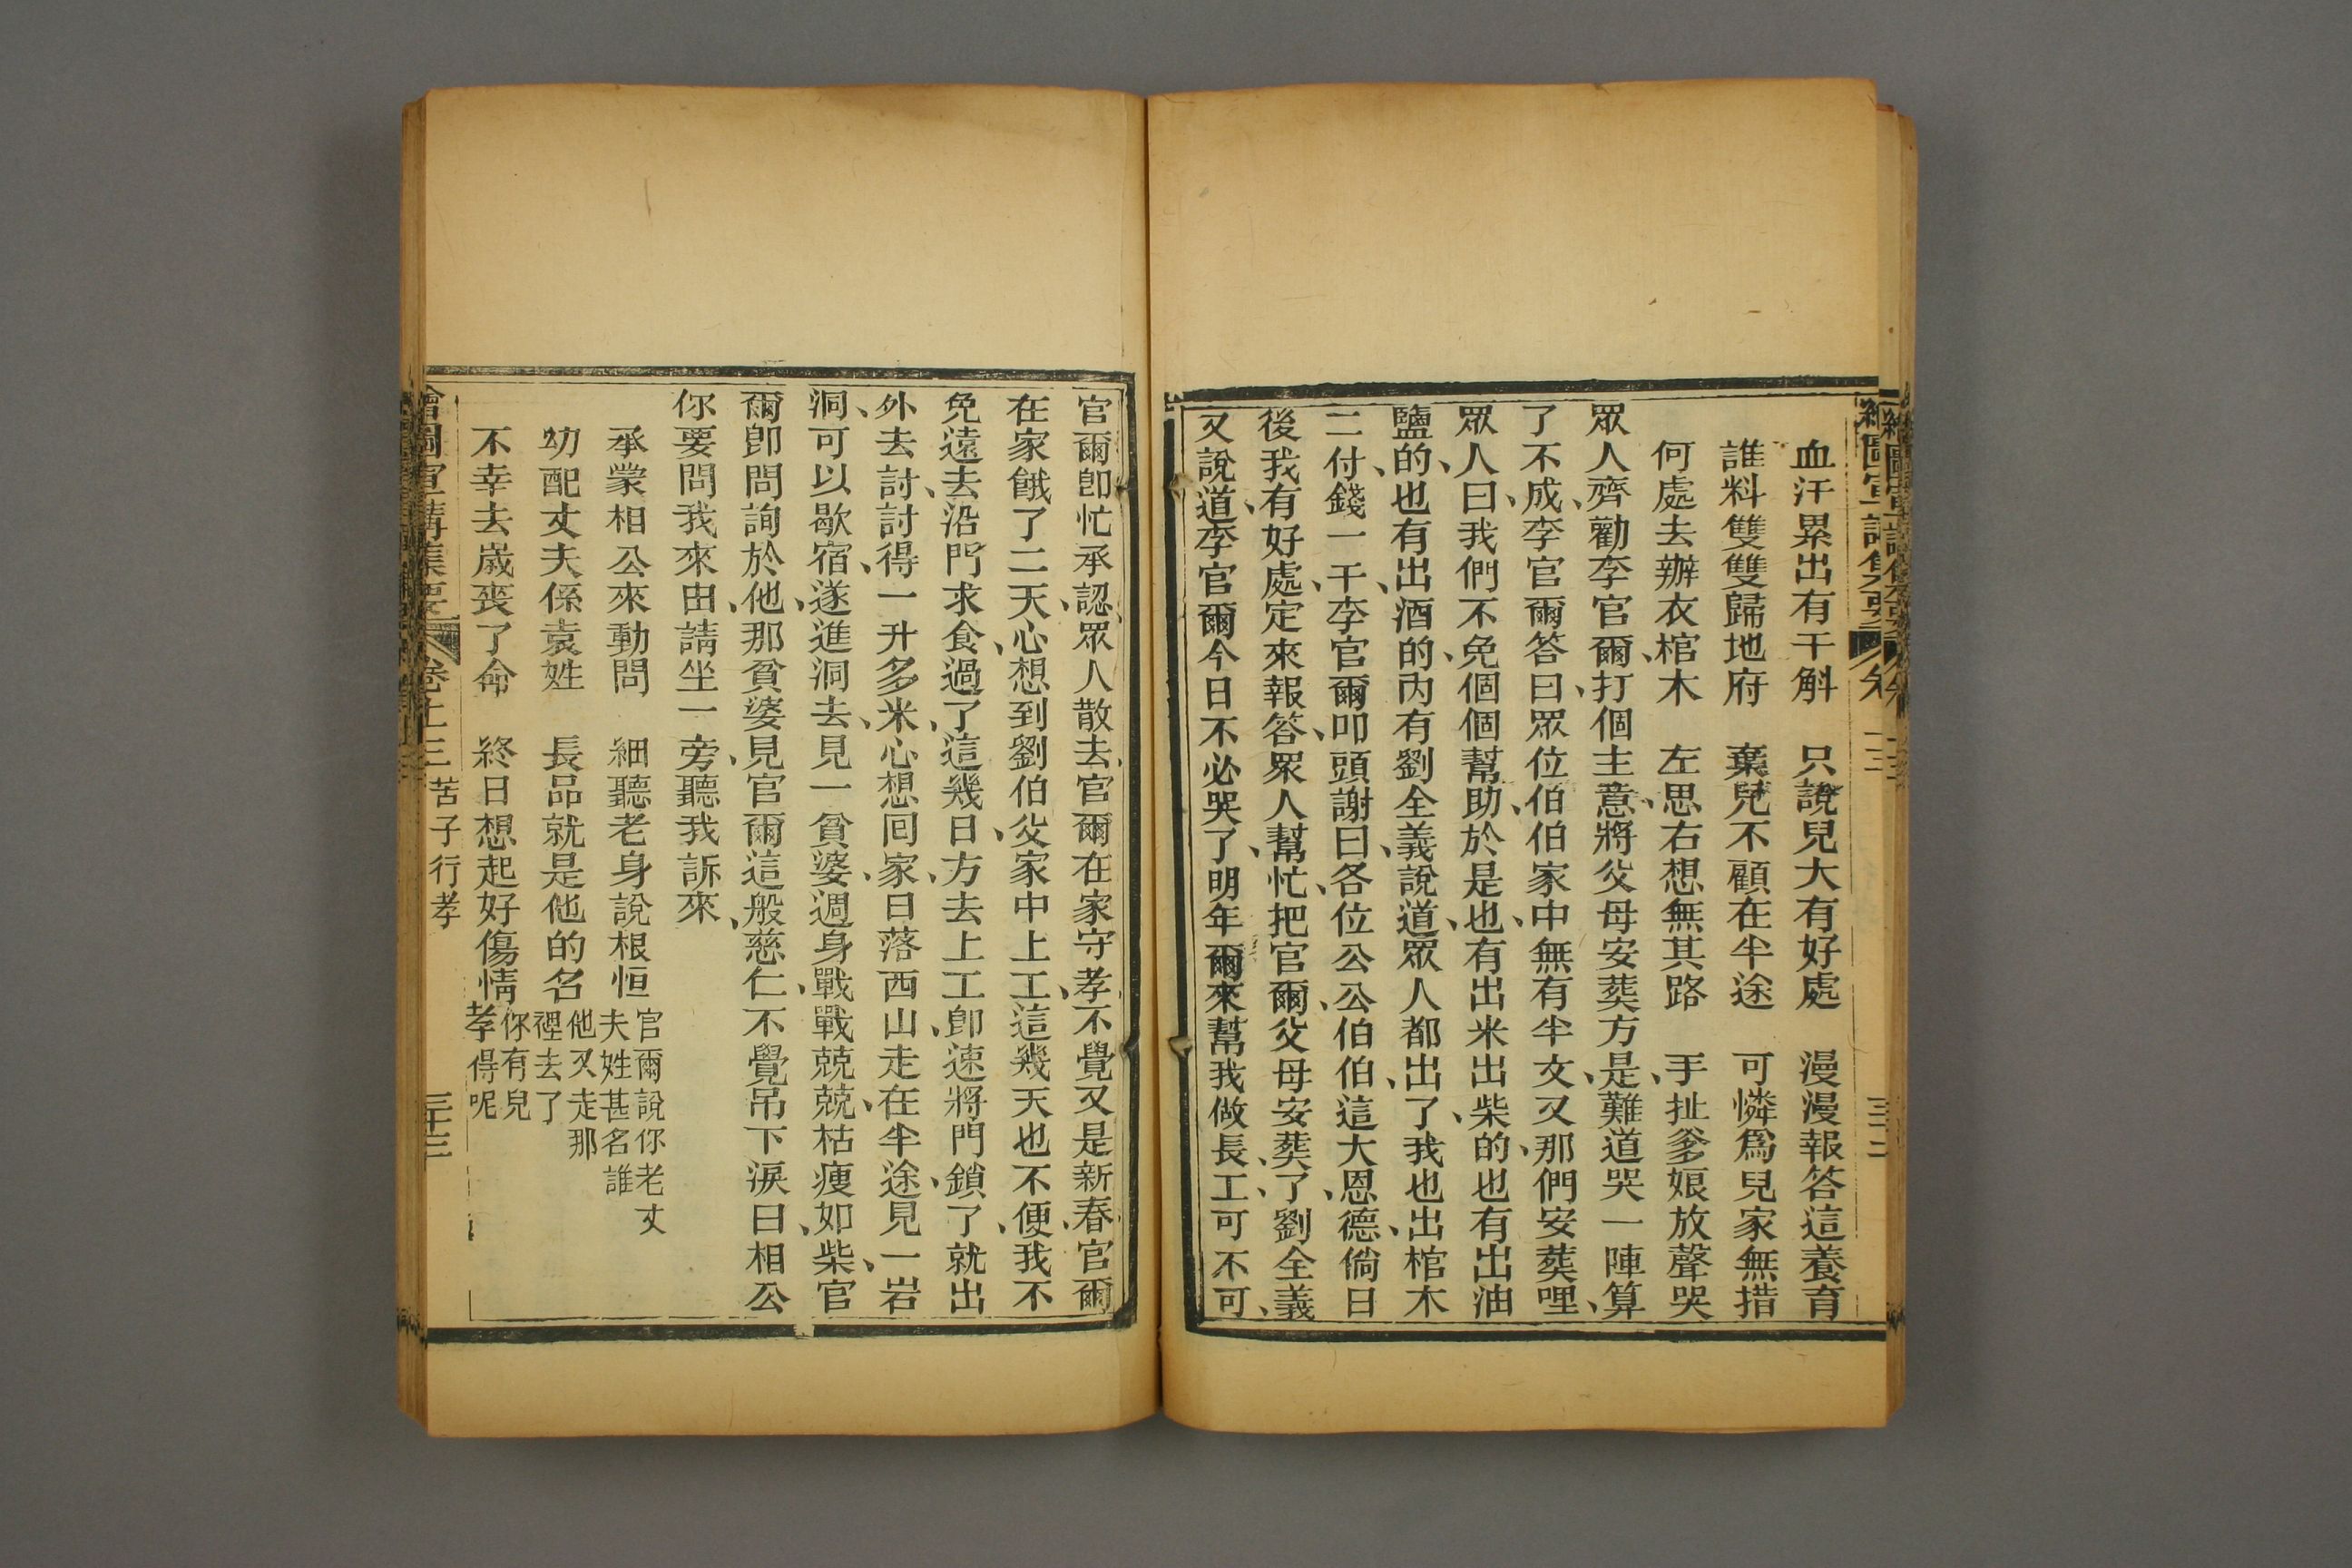 血汗累出有干斛　只說兒大有好處　漫漫報答這養育
誰料雙雙歸地府　棄兒不顧在半途　可憐爲兒家無措
何處去辦衣棺木　左思右想無其路　手扯爹娘放聲哭
眾人齊勸李官爾、打個主意、將父母安葬方是、難道哭一陣算
了不成、李官爾答曰、眾位伯伯家中無有半文、又那們安葬哩、
眾人曰、我們不免個個幫助、於是也、有出米出柴的、也有出油
鹽的、也有出酒的、內有劉全義說道、眾人都出了、我也出棺木
二付、錢一干、李官爾叩頭謝曰、各位公公伯伯、這大恩德、倘日
後我有好處、定來報答、眾人幫忙、把官爾父母安葬了、劉全義
又說道、李官爾今日不必哭了、明年爾來幫我做長工、可不可、
官爾卽忙承認、眾人散去、官爾在家守孝、不覺又是新春、官爾
在家餓了二天、心想到劉伯父家中上工、這幾天也不便、我不
免遠去沿門求食、過了這幾日、方去上工、卽速將門鎖了、就出
外去討、討得一升多米、心想回家、日落西山、走在半途、見一岩
洞、可以歇宿、遂進洞去、見一貧婆、週身戰戰兢兢、枯瘦如柴、官
爾卽問詢於他、那貧婆見官爾這般慈仁、不覺吊下淚曰、相公
你要問我來由、請坐一旁、聽我訴來、
承蒙相公來動問　細聽老身說根恒　官爾說你老丈夫姓甚名誰
幼配丈夫係袁姓　長品就是他的名　他又走那裡去了
不幸去歲喪了命　終日想起好傷情　你有兒孝得呢
繪圖宣講集要　卷十三　苦子行孝　三十三